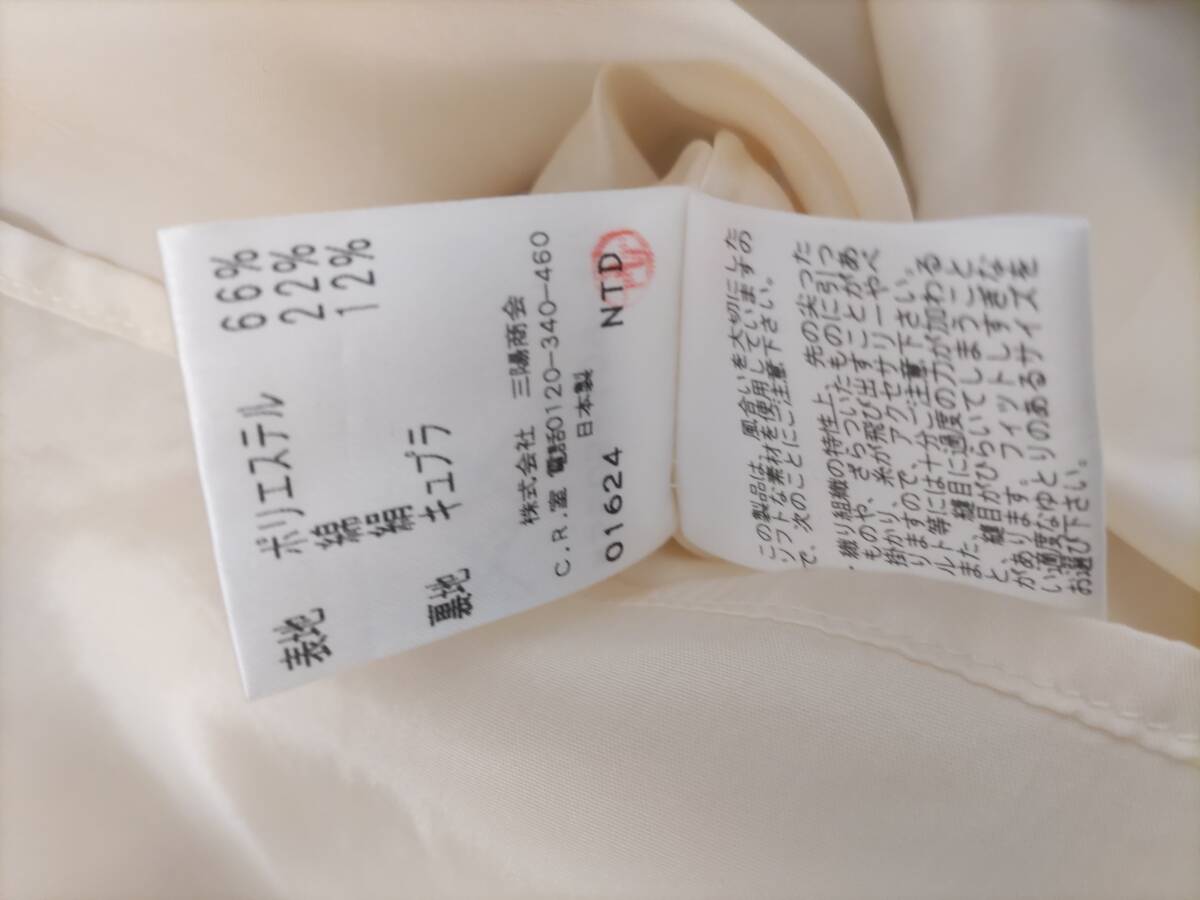 表地 ポリエステル 66%
綿 22%
絹 12%
裏地 キュプラ
株式会社 三陽商会
C.R.室 電話0120-340-460
日本製
01624 NTD
この製品は、風合いを大切にした
ソフトな素材を使用していますの
で、次のことにご注意下さい。
・織り組織の特性上、先の尖った
ものや、ざらついたものに引っ
掛かり、糸が飛び出すことがあ
りますので、アクセサリーやベ
ルト等には十分ご注意下さい。
また、縫目に過度の力が加わる
と、縫目がひらいてしまうこと
があります。フィットしすぎな
い適度なゆとりのあるサイズを
お選び下さい。